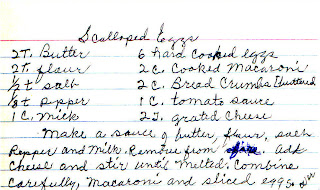 Scalloped Eggs
2T. Butter 6 hard cooked eggs
2T. flour 2c. Cooked Macaroni
1/2t salt 2c. Bread Crumbs (buttered
1/8t pepper 1C. tomato sauce
1C. milk 2T. grated cheese
Make a sauce of butter, flour, salt
Pepper and Milk. Remove from fire. Add
Cheese and stir until Melted. Combine
Carefully, Macaroni and sliced eggs.